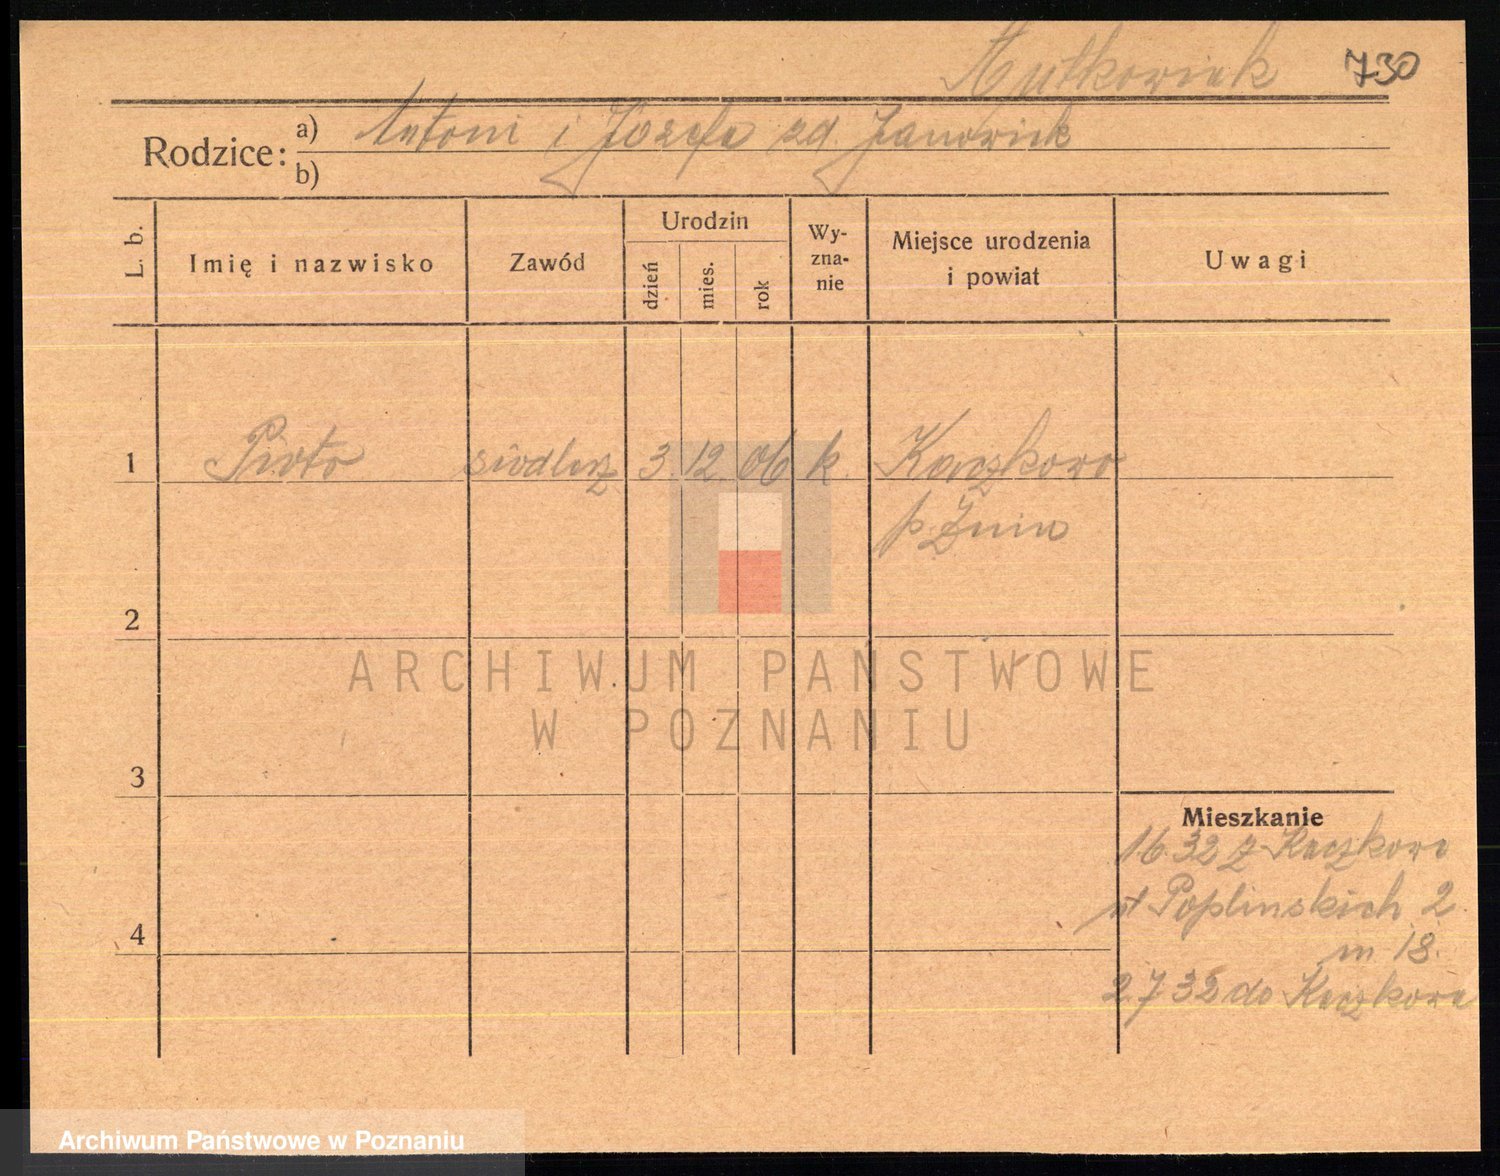 730
Rodzice: a) Antoni i Józefa zd. Janowiak
b)
L. b. Imię i nazwisko Zawód Urodzin dzień mies. rok Wy-zna-nie Miejsce urodzenia i powiat Uwagi
1 Piotr siodlarz 3. 12. 06 k. Kaczkowo
p. Żnin
2
ARCHIWUM PAŃSTWOWE
W POZNANIU
3
Mieszkanie
32 z Kaczkowa
Poplinskich 2
4
m 18.
2 7 32 do Kaczkowa
Archiwum Państwowe w Poznaniu